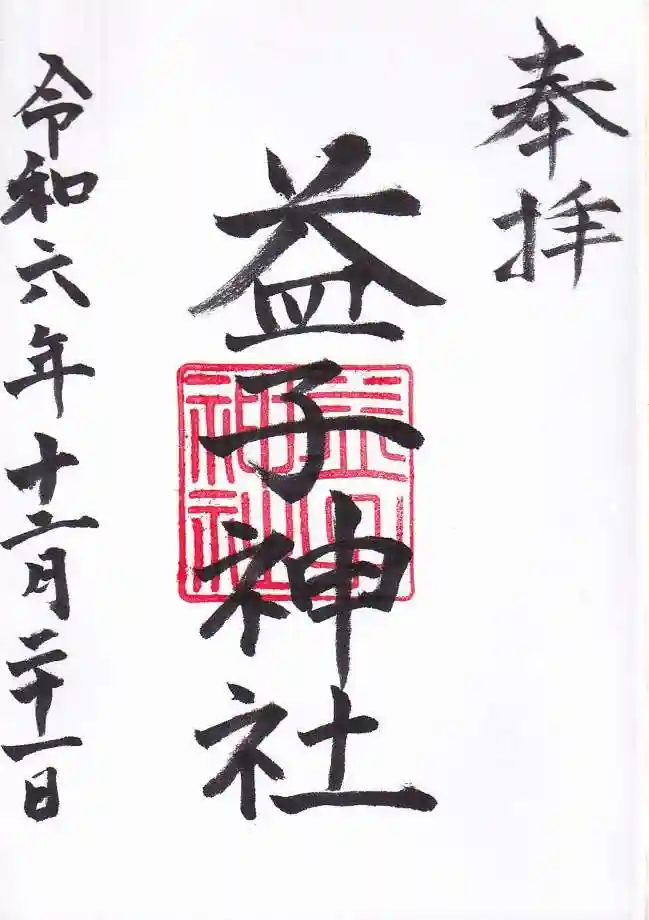 奉拝
益子神社
益子神社
令和六年十二月二十一日